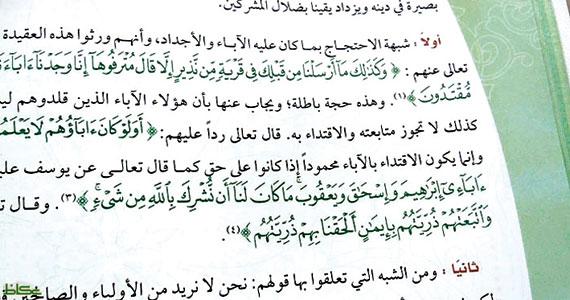 بصيرة في دينه ويزداد يقينا بضلال المشركين.
أولاً : شبهة الاحتجاج بما كان عليه الآباء والأجداد، وأنهم ورثوا هذه العقيدة
تعالى عنهم : ﴿ وَكَذَٰلِكَ مَا أَرْسَلْنَا مِن قَبْلِكَ فِي قَرْيَةٍ مِّن نَّذِيرٍ إِلَّا قَالَ مُتْرَفُوهَا إِنَّا وَجَدْنَا آبَاءَنَا
مُّقْتَدُونَ ﴾(١). وهذه حجة باطلة؛ ويجاب عنها بأن هؤلاء الآباء الذين قلدوهم
كذلك لا تجوز متابعته والاقتداء به. قال تعالى رداً عليهم: ﴿ أَوَلَوْ كَانَ ءَابَاؤُهُمْ لَا يَعْلَمُ
وإنما يكون الاقتداء بالآباء محموداً إذا كانوا على حق كما قال تعالى عن يوسف
ءَابَاءِى إِبْرَاهِيمَ وَإِسْحَاقَ وَيَعْقُوبَ مَا كَانَ لَنَا أَن نُّشْرِكَ بِاللَّهِ مِن شَيْءٍ ﴾(٣). وقال
وَاتَّبَعَتْهُمْ ذُرِّيَّتُهُم بِإِيمَانٍ أَلْحَقْنَا بِهِمْ ذُرِّيَّتَهُمْ ﴾(٤).
ثانيًا : ومن الشبه التي تعلقوا بها قولهم: نحن لا نريد من الأولياء والصالحين
عكاظ